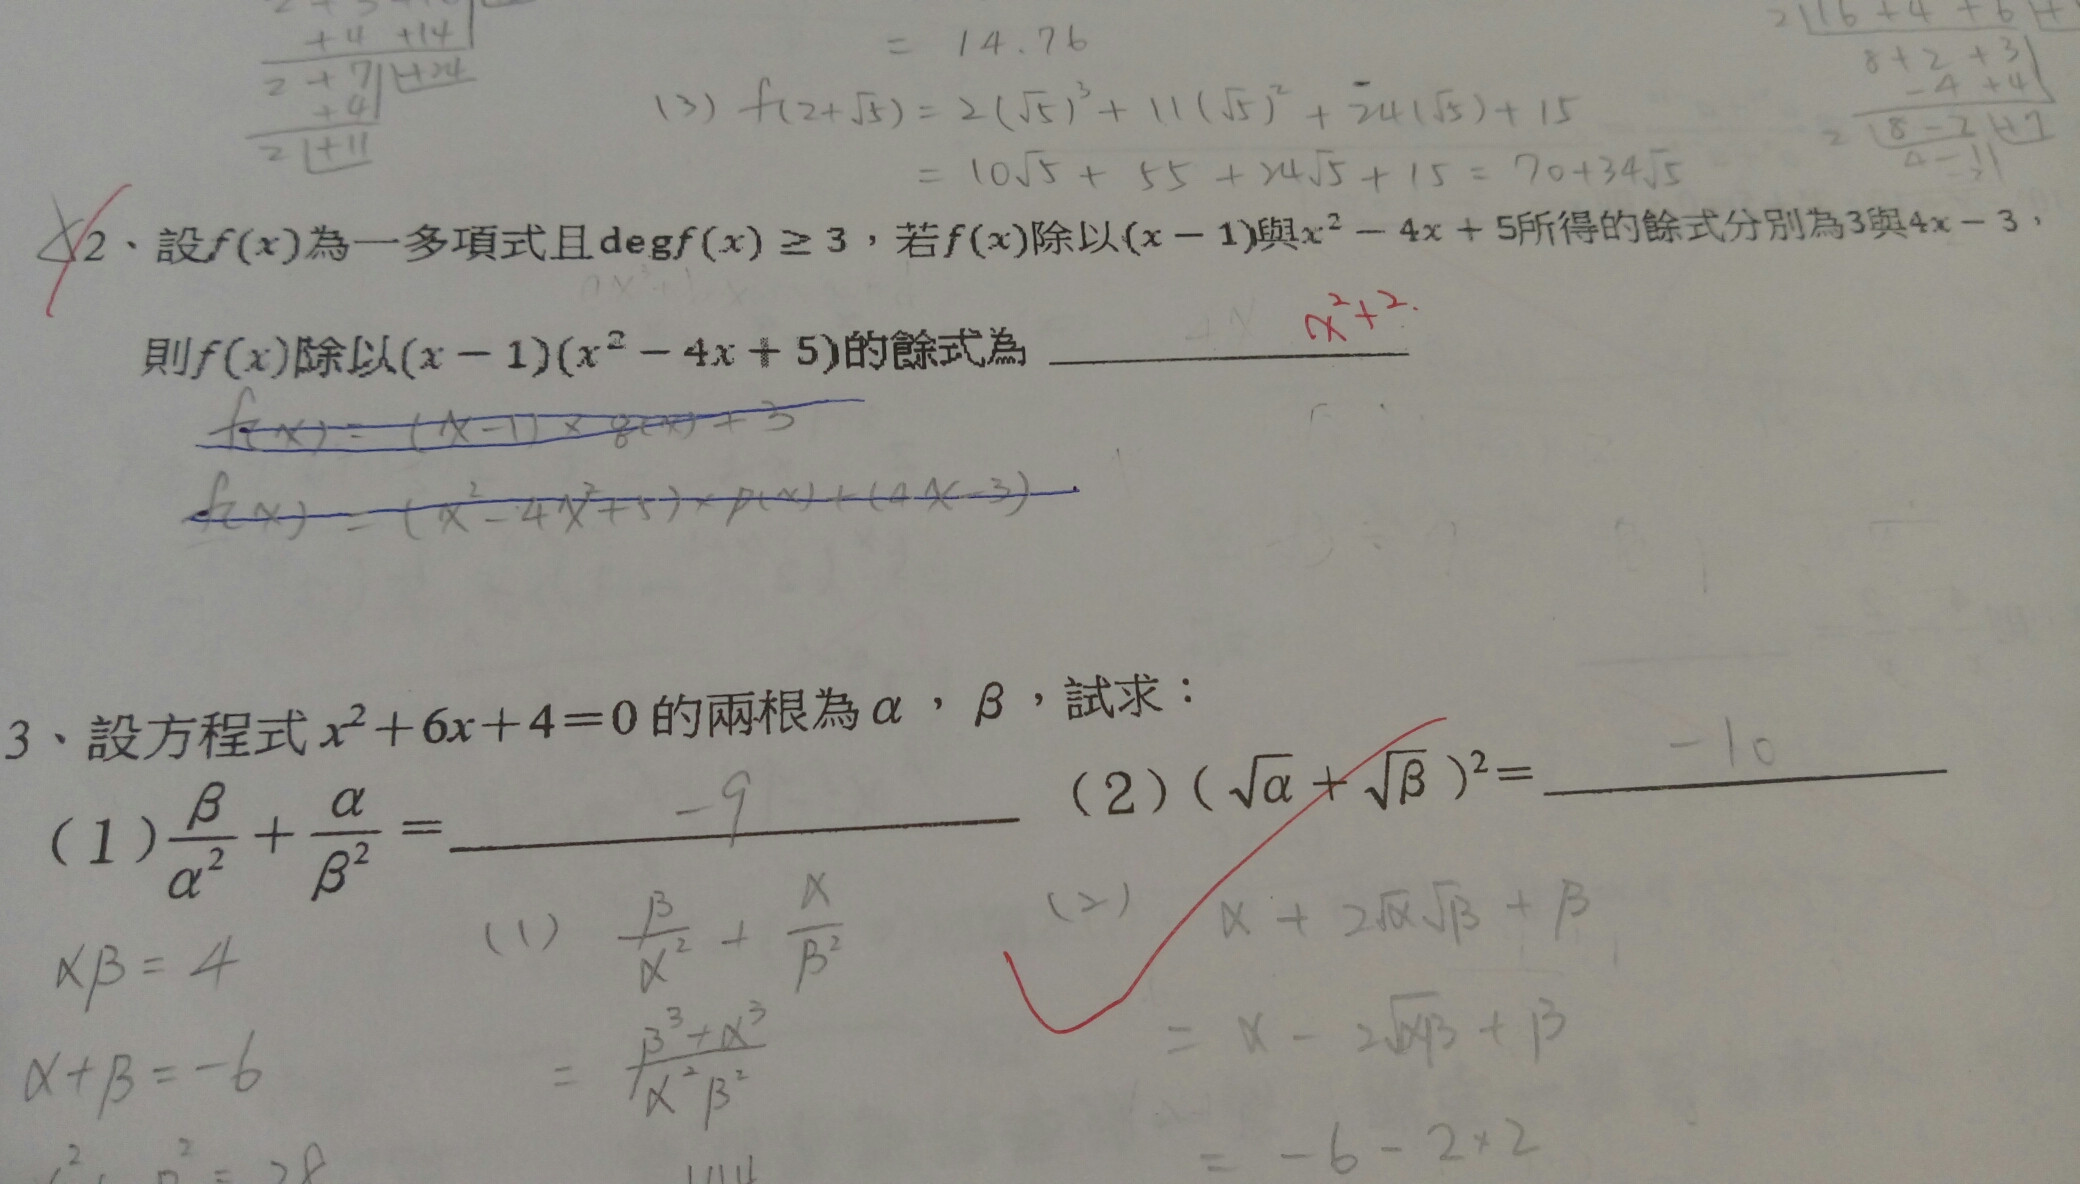 +4 +14
2 + 7 +24
+4
2 +11
= 14.76
(3) f(2+√5) = 2(√5)³ + 11(√5)² + 24(√5) + 15
= 10√5 + 55 + 24√5 + 15 = 70+34√5
2 16 + 4 + 6
8 + 2 + 3
-4 +4
2 8 - 2 +7
2、設f(x)為一多項式且degf(x) ≥ 3,若f(x)除以(x − 1)與x² − 4x + 5所得的餘式分別為3與4x − 3,
則f(x)除以(x − 1)(x² − 4x + 5)的餘式為 x²+2.
f(x) = (x-1) × g(x) + 3
f(x) = (x²-4x²+5) × p(x) + (4x-3)
3、設方程式 x²+6x+4=0 的兩根為α,β,試求:
(1) β/α² + α/β² = -9 (2) (√α + √β)² = -10
αβ = 4 (1) β/α² + α/β² (2) α + 2√α√β + β
α+β = -6 = β³+α³/α²β² = α - 2√αβ + β
= 28 = -6 - 2×2